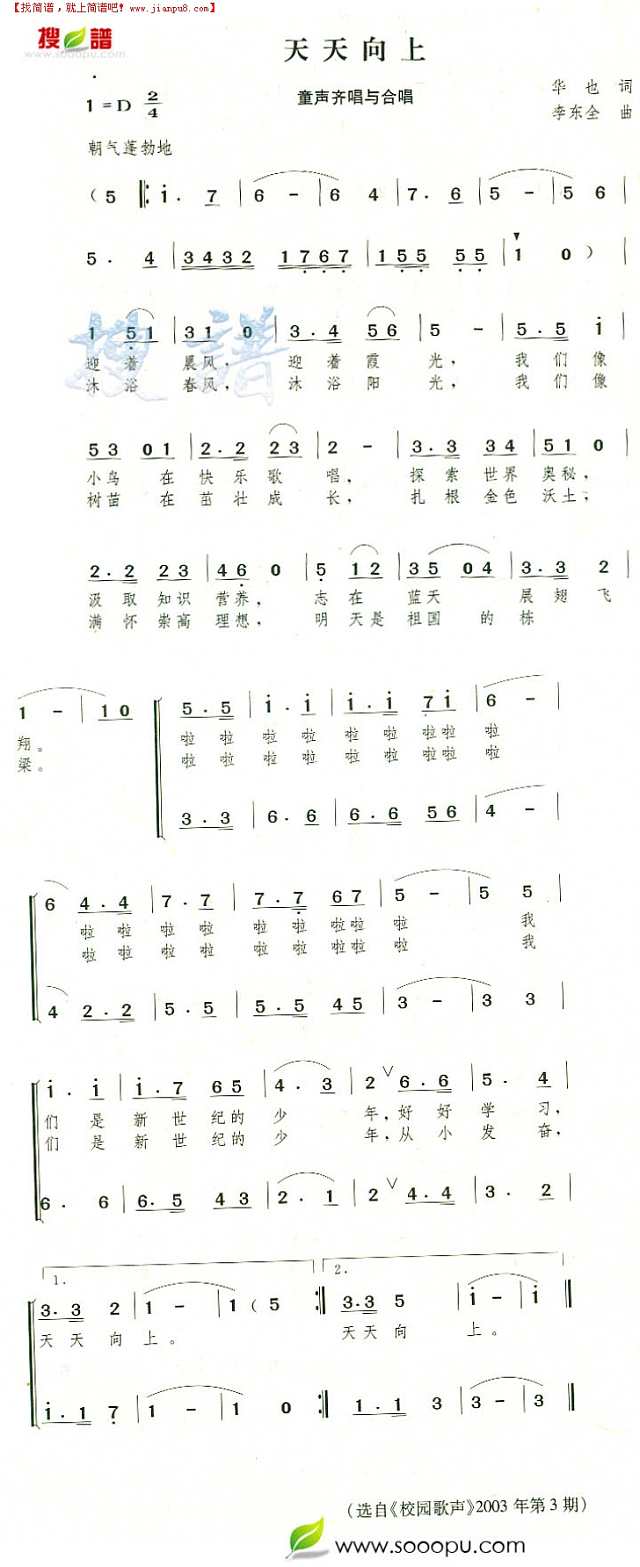 【找简谱，就上简谱吧! www.jianpu8.com】
搜谱
www.sooopu.com
天天向上
1=D 2/4
童声齐唱与合唱
华也 词
李东全 曲
朝气蓬勃地
( 5 |: i. 7 | 6 - | 6 4 | 7. 6 | 5 - | 5 6 |
5. 4 | 3432 1767 | 155 55 | 1 0 ) |
1 51 | 31 0 | 3.4 56 | 5 - | 5.5 i |
迎着 晨风， 迎着霞 光， 我们像
沐浴 春风， 沐浴阳 光， 我们像
53 01 | 2.2 23 | 2 - | 3.3 34 | 51 0 |
小鸟 在快乐歌 唱， 探索世界奥秘，
树苗 在茁壮成 长， 扎根金色沃土；
2.2 23 | 46 0 | 5 12 | 35 04 | 3.3 2 |
汲取知识营养， 志在 蓝天 展翅飞
满怀崇高理想， 明天是祖国 的栋
1 - | 10 | 5.5 | i.i | i.i 7i | 6 - |
翔。 啦啦 啦啦 啦啦啦啦 啦
梁。 啦啦 啦啦 啦啦啦啦 啦
3.3 | 6.6 | 6.6 56 | 4 - |
6 4.4 | 7.7 | 7.7 67 | 5 - | 5 5 |
啦啦 啦啦 啦啦啦啦 啦 我
啦啦 啦啦 啦啦啦啦 啦 我
4 2.2 | 5.5 | 5.5 45 | 3 - | 3 3 |
i. i | i.7 65 | 4.3 | 2 ∨ 6.6 | 5. 4 |
们是新世纪的少 年，好好学习，
们是新世纪的少 年，从小发奋，
6. 6 | 6.5 43 | 2.1 | 2 ∨ 4.4 | 3. 2 |
1. 2.
3.3 2 | 1 - | 1 ( 5 :| 3.3 5 | i - | i ‖
天天向 上。 天天向 上。
1.1 7 | 1 - | 1 0 :| 1.1 3 | 3 - | 3 ‖
(选自《校园歌声》2003年第3期)
www.sooopu.com